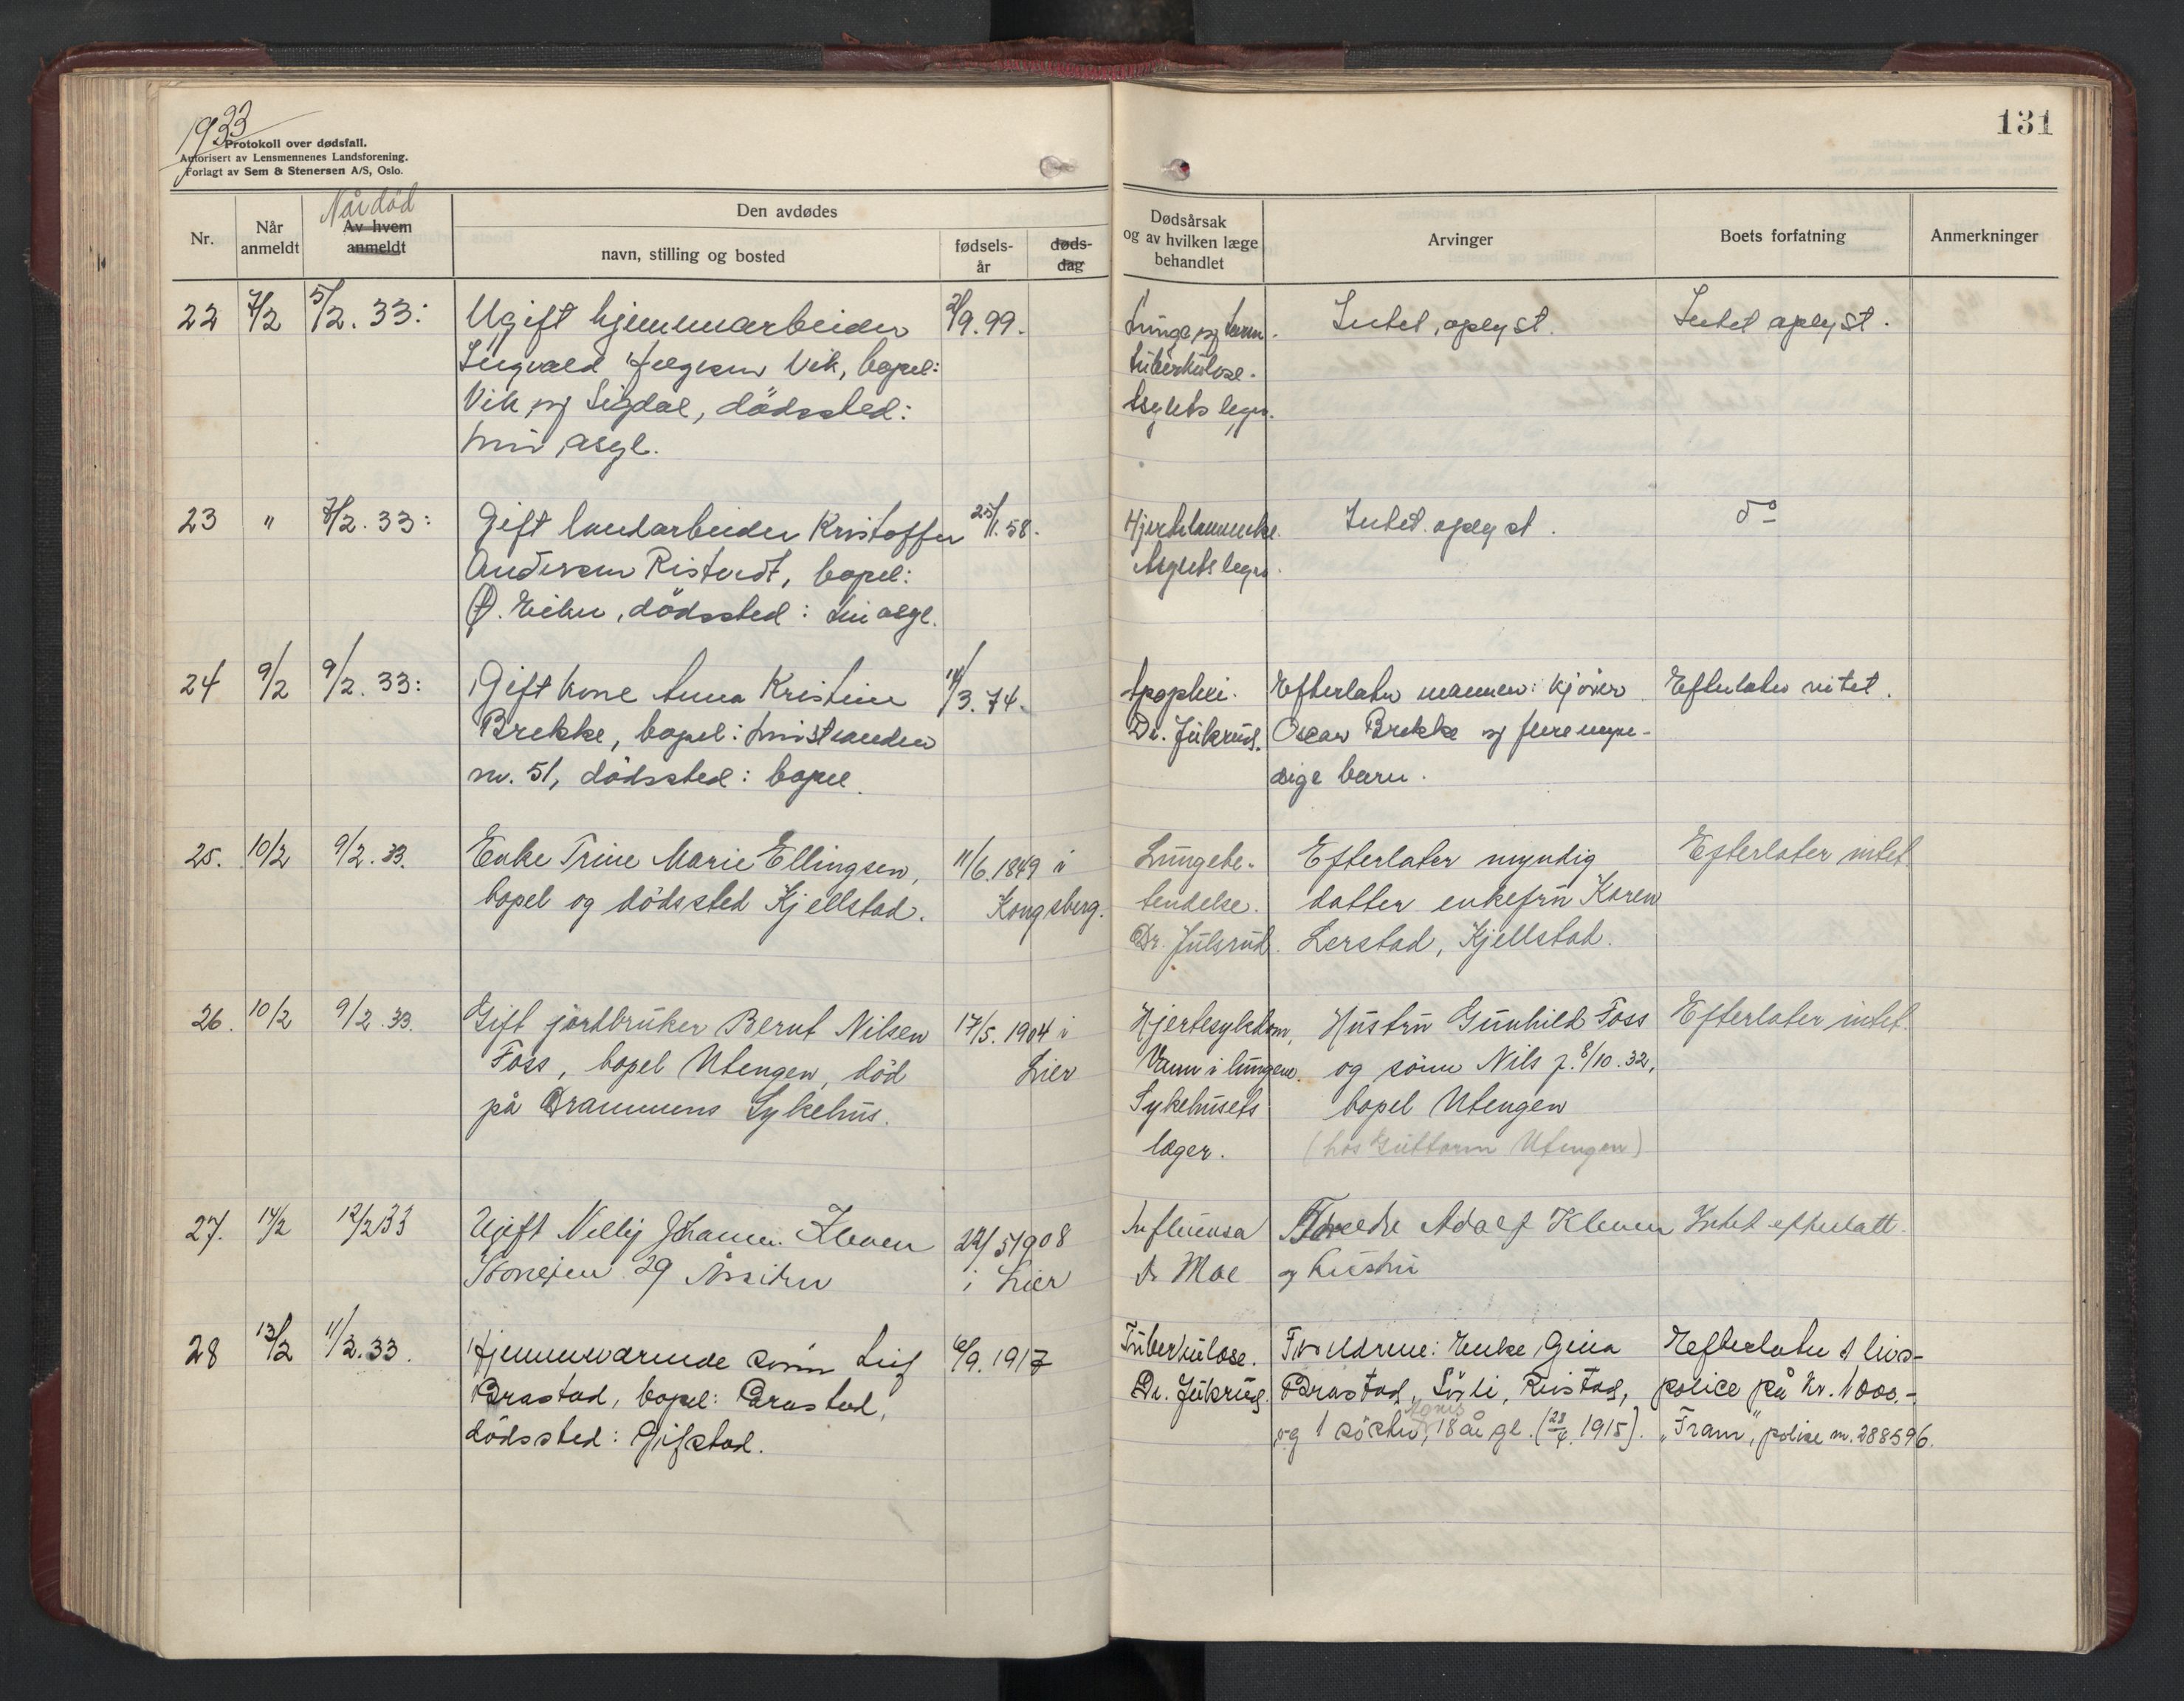 1933
Protokoll over dødsfall.
Autorisert av Lensmennenes Landsforening.
Forlagt av Sem & Stenersen A/S, Oslo.
131
Nr.
Når anmeldt
Når død
Av hvem anmeldt
Den avdødes
navn, stilling og bosted
fødselsår
dødsdag
Dødsårsak og av hvilken læge behandlet
Arvinger
Boets forfatning
Anmerkninger
22 7/2 5/2. 33: Ugift hjemmearbeider 2/9. 99. Lunge og tarm- Intet oplyst. Intet oplyst.
Ingvald Helgesen Vik, bopel: tuberkulose.
Vik pr Sigdal, dödssted: Asylets leger.
Lier asyl.
23 " 7/2. 33: Gift landarbeider Kristoffer 25/11. 58. Hjertelammelse. Intet oplyst. do
Andersen Ristvedt, bopel: Asylets leger.
Ø. Eiker, dödssted: Lier asyl.
24 9/2 9/2. 33: Gift kone Anna Kristine 14/3. 74. Apoplexi. Efterlater mannen: kjörer Efterlater intet.
Brekke, bopel: Lierstranden Dr. Julsrud. Oscar Brekke og flere myn-
nr. 51, dödssted: bopel. dige barn.
25. 10/2 9/2. 33. Enke Trine Marie Ellingsen, 11/6. 1849 i Lungebe- Efterlater myndig Efterlater intet
bopel og dödssted Kjellstad. Kongsberg. tendelse. datter enkefru Karen
Dr. Julsrud. Lerstad, Kjellstad.
26. 10/2 9/2. 33. Gift jordbruker Bernt Nilsen 17/5. 1904 i Hjertesykdom, Hustru Gunhild Foss Efterlater intet.
Foss, bopel Utengen, död Lier Vann i lungene. og sönn Nils f. 8/10. 32,
på Drammens Sykehus. Sykehusets bopel Utengen
læger. (hos Guttorm Utengen)
27. 14/2 12/2 33 Ugift Nelly Johanne Kleven 22/5 1908 Influensa Foreldre Adolf Kleven Intet efterlatt.
29 Åssiden i Lier Dr Moe og hustru
28 13/2 11/2. 33. Hjemmeværende sönn Leif 6/9. 1917 Tuberkulose. Foreldrene: Enke Gina Efterlater 1 livs-
Brastad, bopel: Brastad, Dr. Julsrud. Brastad, Sörli, Ristad, police på kr. 1000.-
dödssted: Gifstad. og 1 söster, Agnes 18 år gl. (28/4. 1915). "Fram", polise nr. 288596.